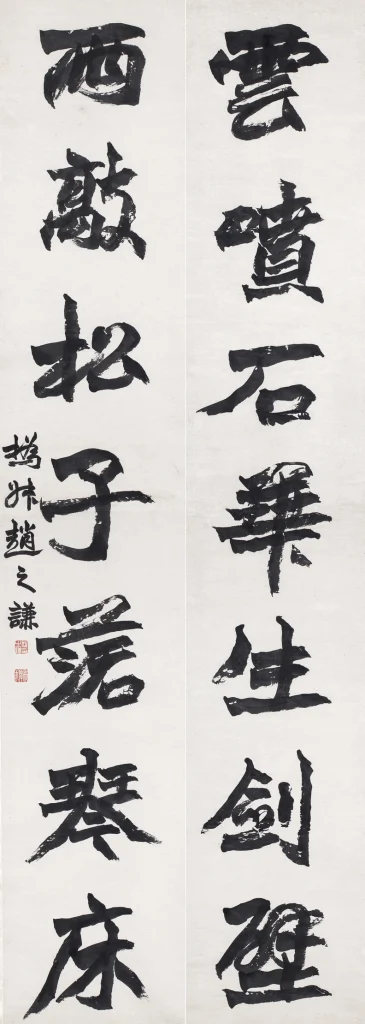 雲噴石華生劍壁
雨敲松子落琴床
撝叔趙之謙